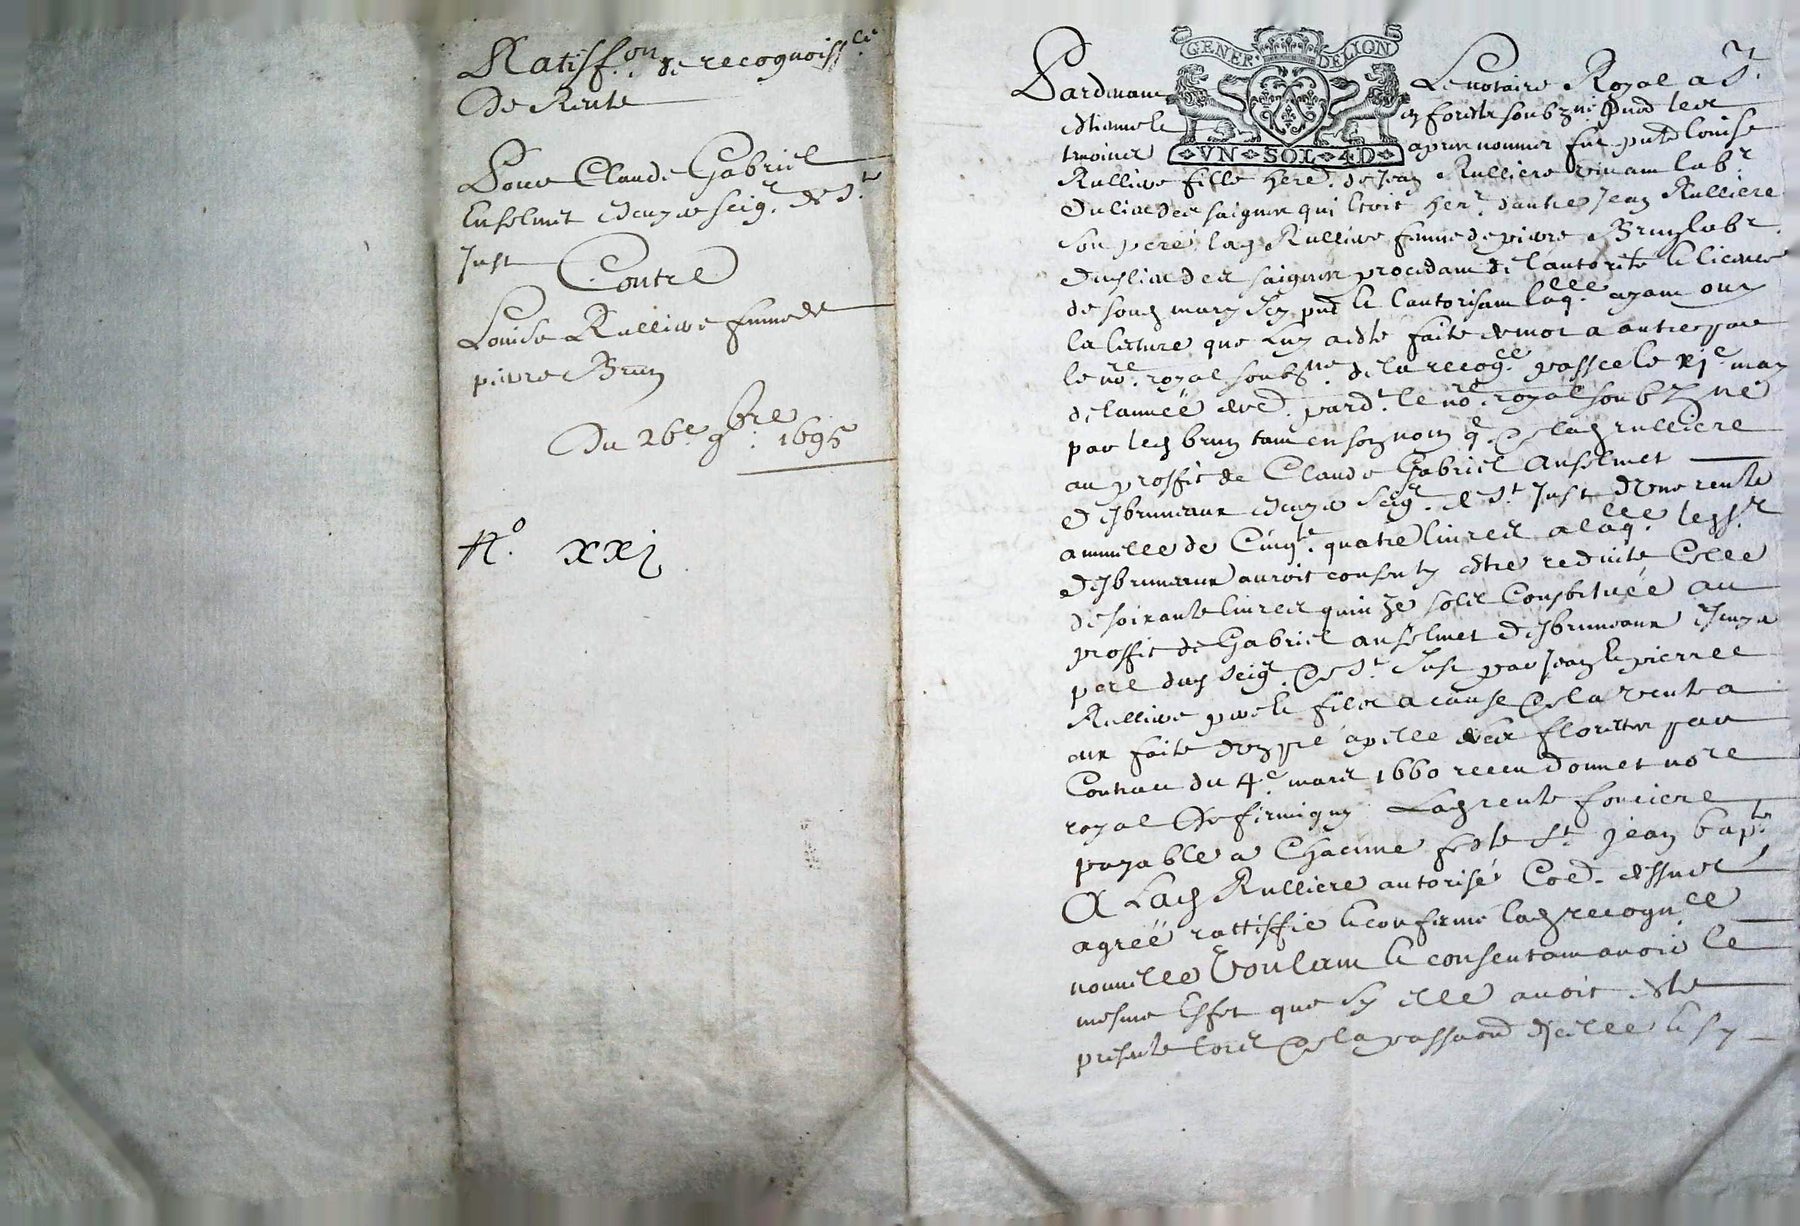 Ratisf.on de recognoiss.ce
De Rente
Pour Claude Gabriel
Enselmet Escuyer seigr. de St
Just
Contre
Louise Rulliere femme de
pierre Brun
Du 26e 9bre 1695
N.o xxj
GENER DE LION
VN SOL 4D
Pardevant Le notaire Royal a St.
Estienne en forests soubzne pnd les
temoins apres nommes fut pnte Louise
Rulliere fille here. de Jean Rulliere vivant labr.
du lieu des saignes qui estoit herr. dautre Jean Rulliere
son pere, lad Rulliere femme de pierre Brun labr.
dud lieu des saignes procedant de lautorité & licence
de sond mary icy pnt & lautorisant laqlle. ayant ouy
la lecture que luy a esté faite de mot a autre par
le nore. royal soubzne. de la recogce. passee le xje may
de lannée pard. le nore. royal soubzné
par led brun tant en son nom q de lad rulliere
au proffit de Claude Gabriel Anselmet
Desbruneaux Escuyer Seigr. de St Just d'une rente
annuelle de Cinqte. quatre livres a laqlle. led Sr.
Desbruneaux auroit consenty estre reduite Celle
de soixante livres quinze sols Constituée au
proffit de Gabriel anselmet Desbruneaux Escuyer
pere dud Seigr. de St. Just par Jean & pierre
Rulliere pere & fils a cause de la vente a
eux faite par
Contract du 4e mars 1660 receu Donnet nore
royal de firminy. Lad rente fonciere
payable a Chacune feste St Jean bapte.
A Lad Rulliere autorisé Coe. dessus
agréé rattiffié & confirmé lad recogn.ce
nouvelle Voulant & consentant avoir le
mesme Effet que sy elle avoit esté
presente lors de la passaon d'icelle & sy